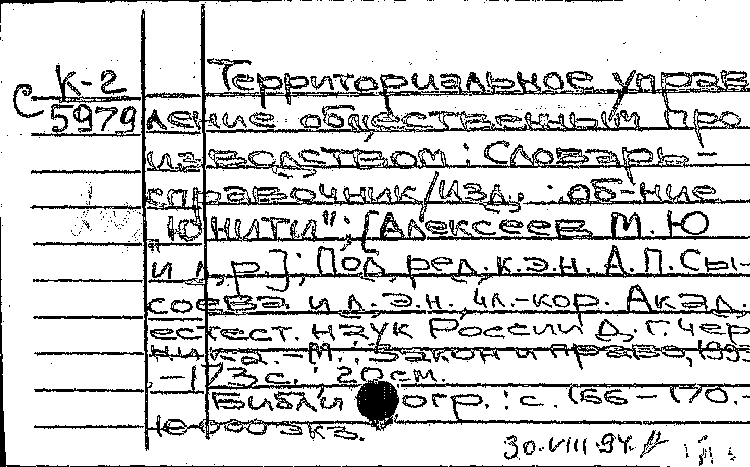 С К-2
5979
Территориальное управ
ление общественным про
изводством: Словарь-
справочник/Изд. об-ние
"ЮНИТИ"; [Алексеев М.Ю
и др.]; Под ред. к.э.н. А.П. Сы-
соева и д.э.н. чл.-кор. Акад.
естест. наук России Д.Г. Чер
ника. - М.: Закон и право, 1993
. - 173 с.; 20 см.
Библиогр.: с. 166-170. -
10 000 экз.
30.VIII.94